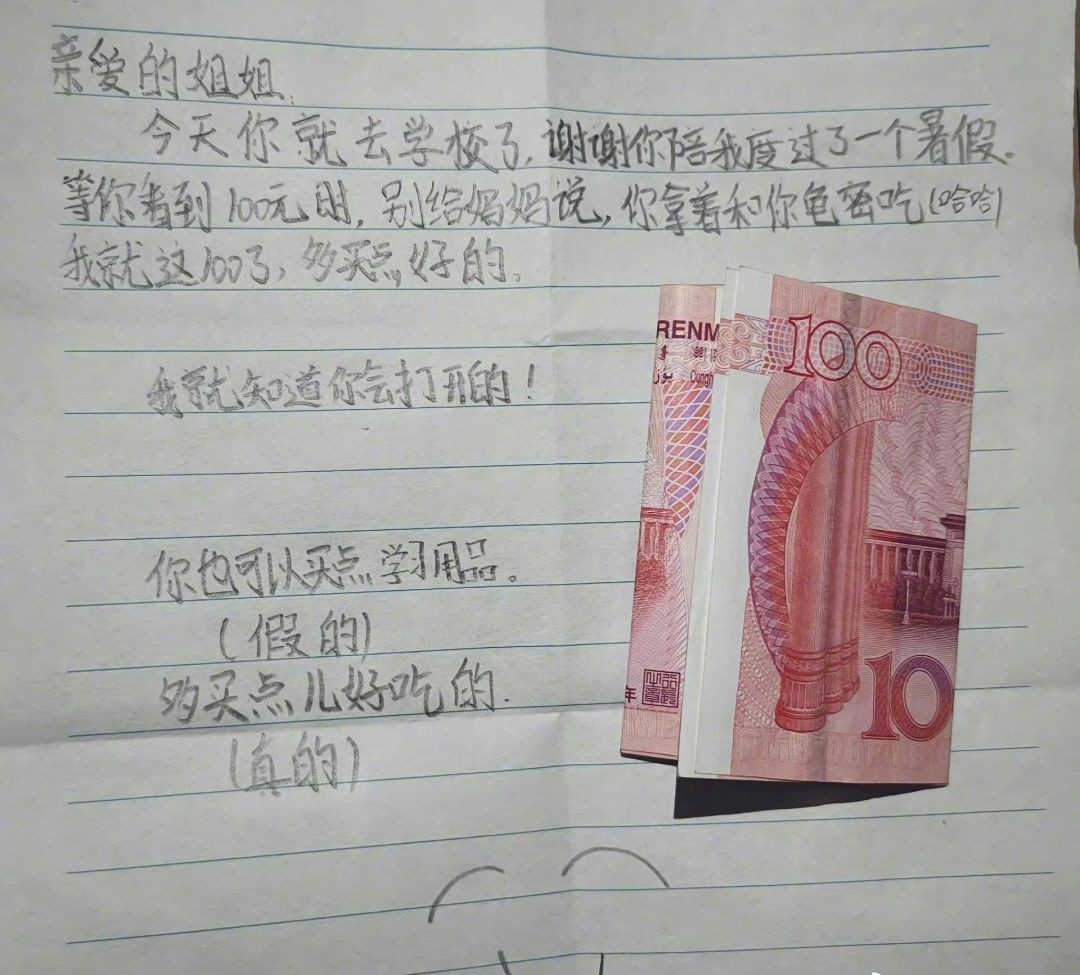 亲爱的姐姐.
今天你就去学校了,谢谢你陪我度过了一个暑假.
等你看到100元时,别给妈妈说,你拿着和你龟密吃(哈哈)
我就这100了,多买点好的.
我就知道你会打开的!
你也可以买点学习用品。
(假的)
多买点儿好吃的.
(真的)
RENM
100
10
年